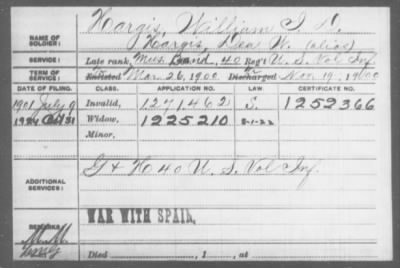 NAME OF SOLDIER: Hargis, William I. D.
Hargis, Dea W. (alias)
SERVICE: Late rank, Mus. Band, 40 Reg't U. S. Vol Inf.
TERM OF SERVICE: Enlisted Mar. 26, 1900 Discharged Nov. 19, 1900
DATE OF FILING. CLASS. APPLICATION NO. LAW. CERTIFICATE NO.
1901 July 9 Invalid, 1271462 S. 1252366
1924 Oct 31 Widow, 1225210 5-1-22
Minor,
ADDITIONAL SERVICES: G + H 40 U. S. Vol Inf.
WAR WITH SPAIN.
REMARKS:
Died , 1 , at